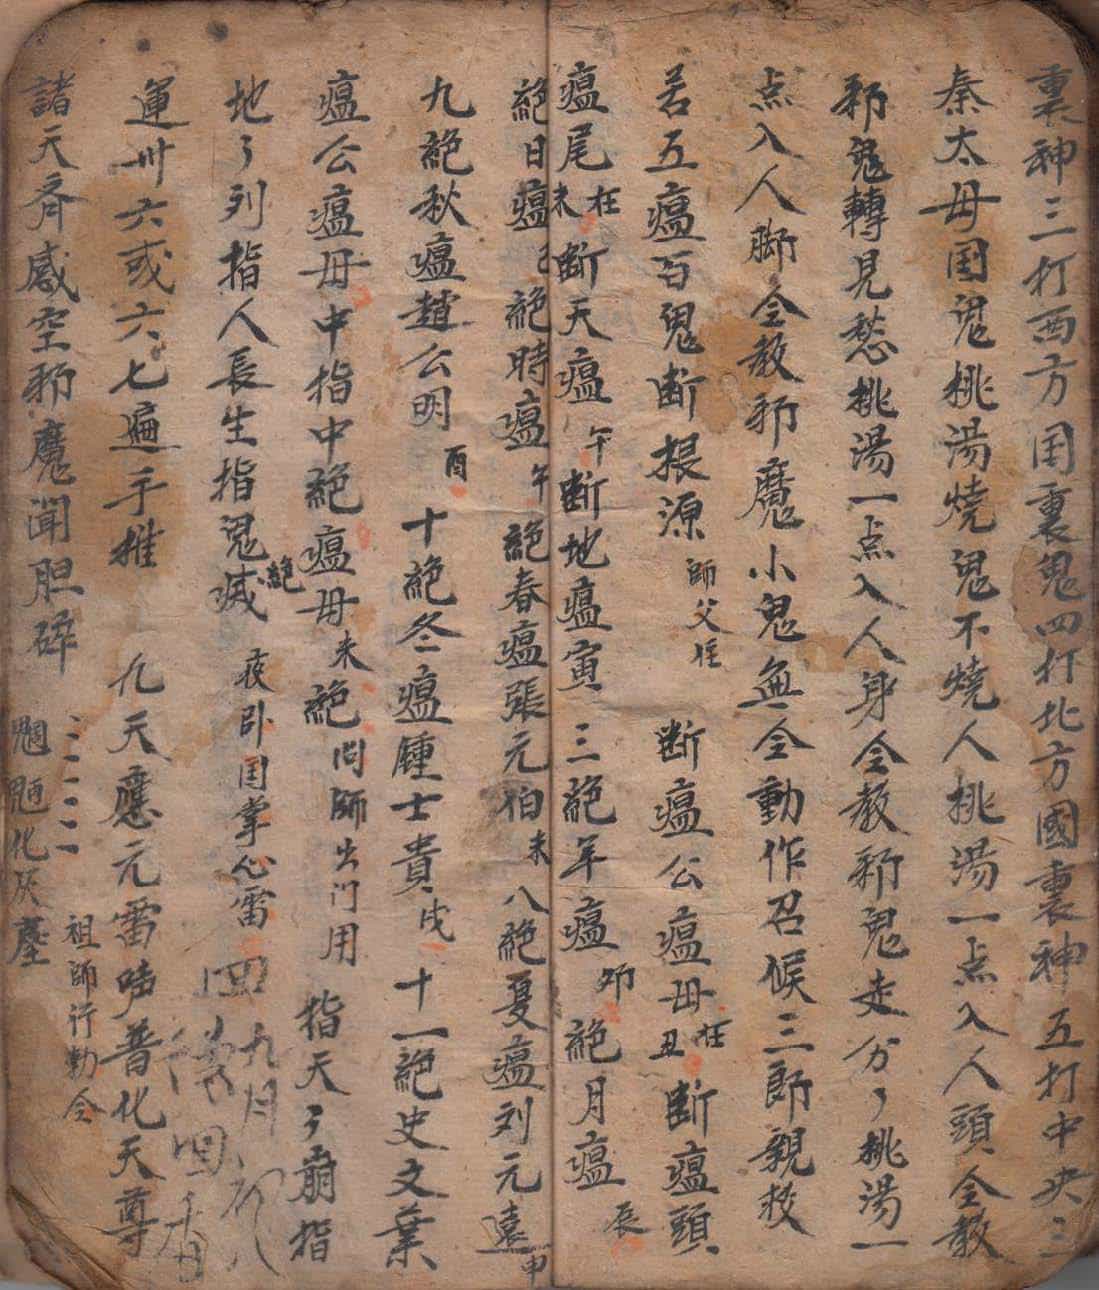 裏神三打西方囯裏鬼四打北方國裏神五打中央三
秦太母囯鬼桃湯燒鬼不燒人桃湯一点入人頭令教
邪鬼轉見愁桃湯一点入人身令教邪鬼走分々桃湯一
点入人脚令教邪魔小鬼無令動作召候三郎親校
若五瘟百鬼断根源 師父住 断瘟公瘟母在丑断瘟頭
瘟尾在未断天瘟午断地瘟寅三絕年瘟夘絕月瘟辰
絕日瘟巳絕時瘟午絕春瘟張元伯未八絕夏瘟刘元遠申
九絕秋瘟趙公明酉十絕冬瘟鍾士貴戌十一絕史文業
瘟公瘟母中指中絕瘟母未絕問師出门用 指天々崩指
地々列指人長生指鬼滅絕 夜卧囯掌心雷
四九月
運卅六或六七遍手推 九天應元雷声普化天尊
諸天齐感空邪魔闻胆碎 化灰塵
祖師行勅令